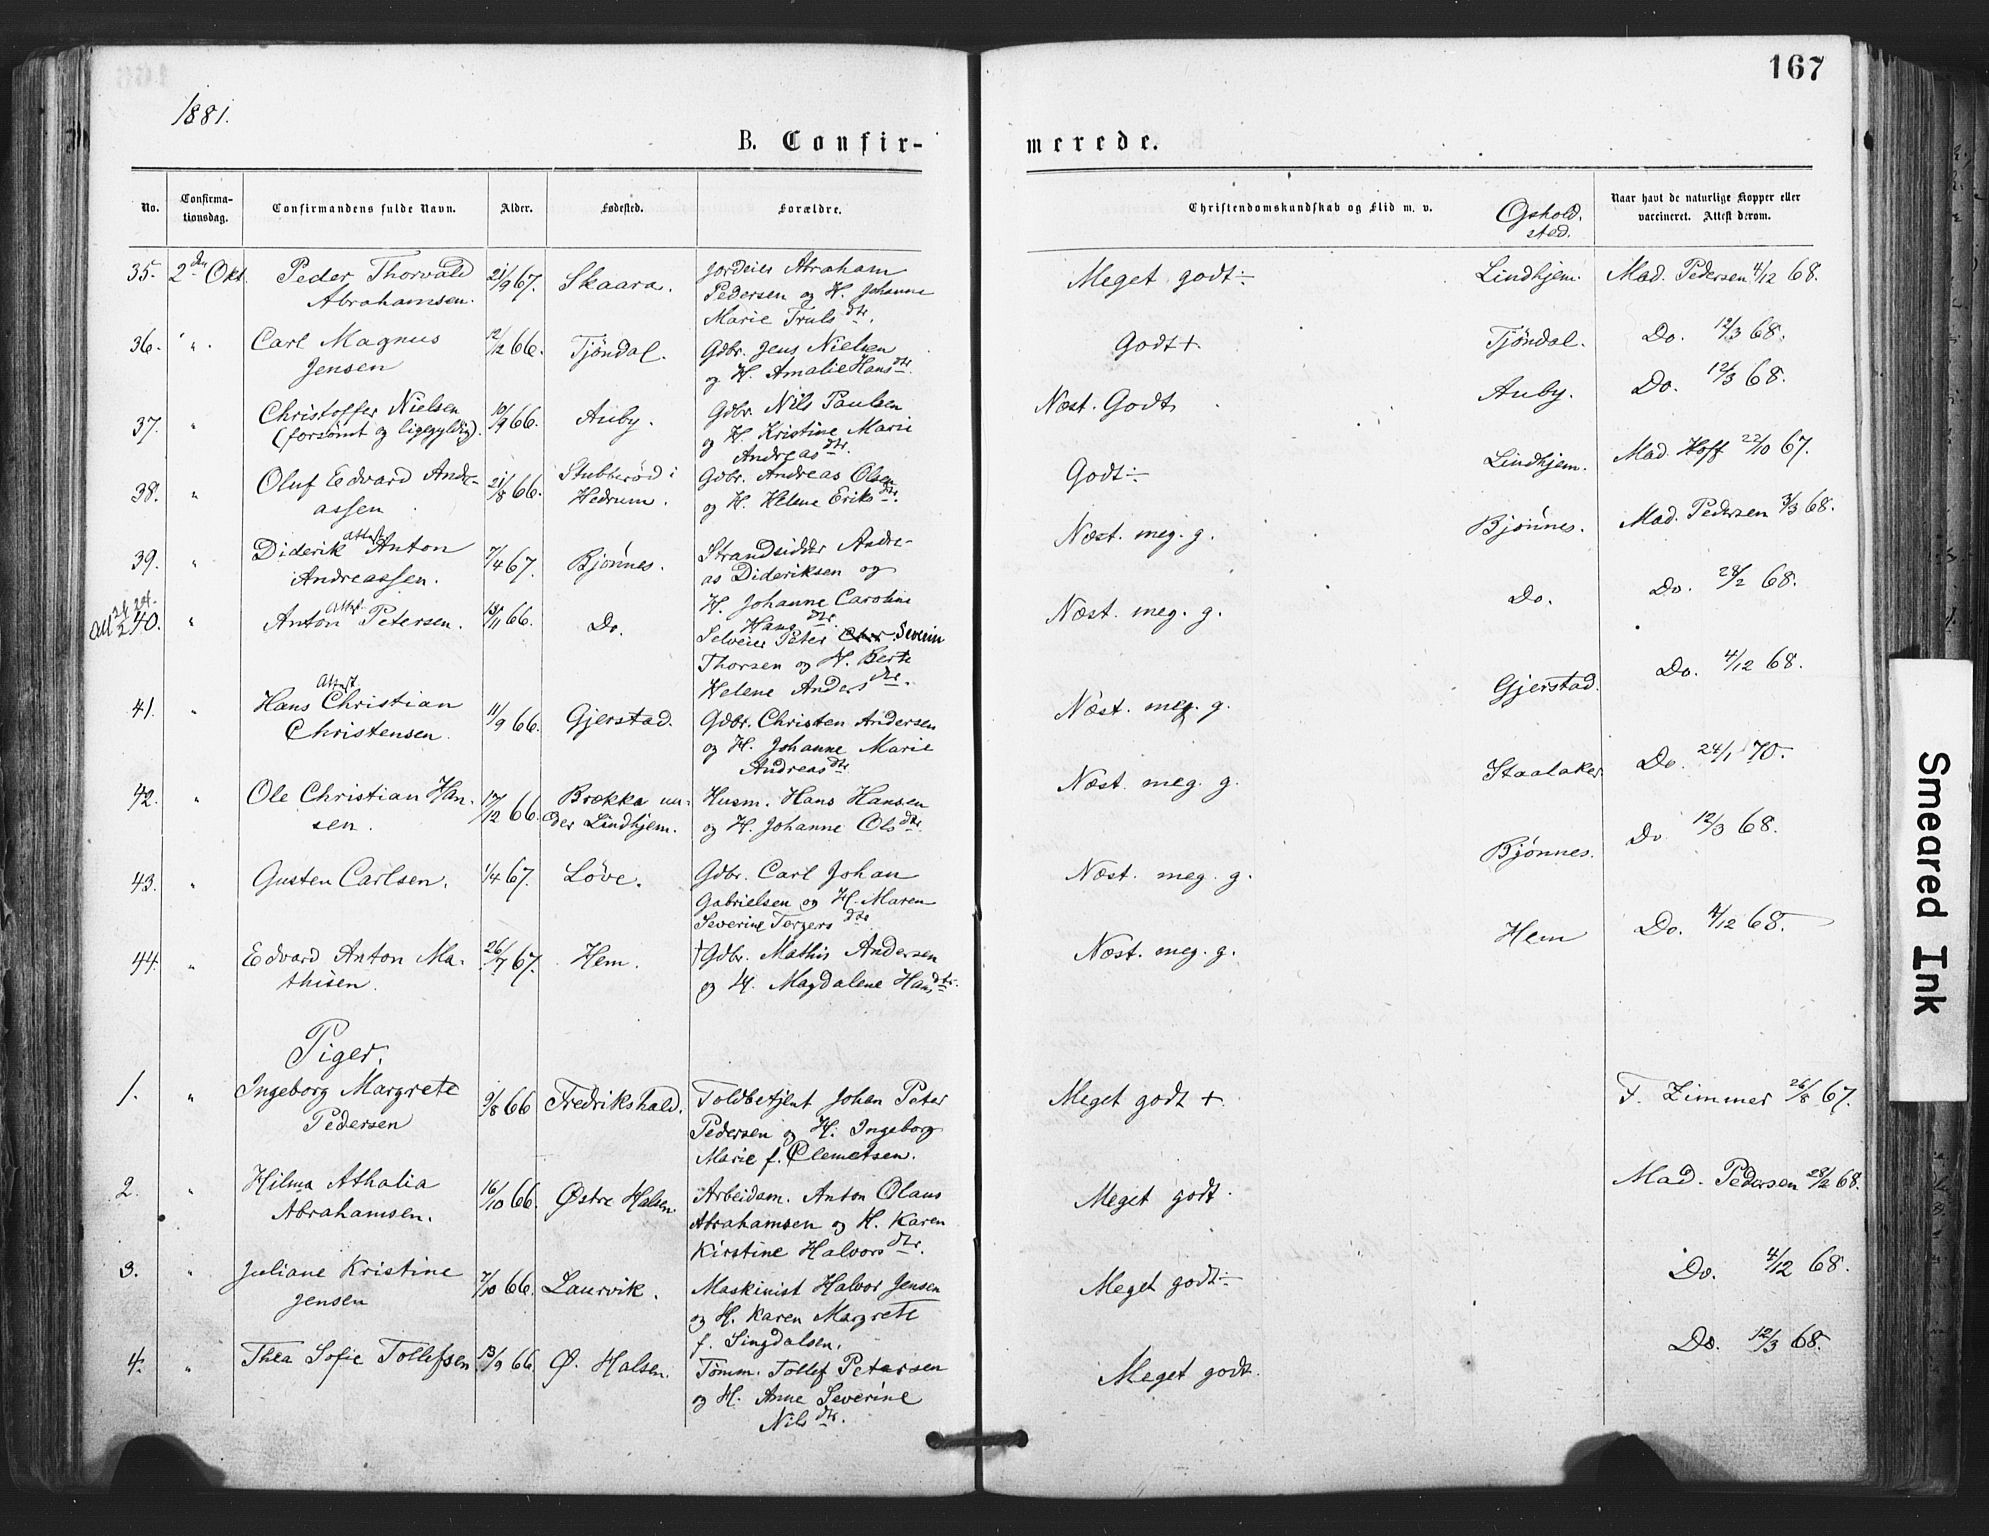 167
1881.
B. Confir-
merede.
No.
Confirma-
tionsdag.
Confirmandens fulde Navn.
Alder.
Fødested.
Forældre.
Christendomskundskab og Flid m. v.
Ophold.
sted.
Naar havt de naturlige Kopper eller
vaccineret. Attest derom.
35. 2den Okt. Peder Thorvald 21/9 67. Skaara. Jordeier Abraham Meget godt÷ Lindhjem. Mad. Pedersen 4/12 68.
Abrahamsen. Pedersen og H. Johanne
Marie Trulsdtr.
36. " Carl Magnus 12/2 66. Tjöndal. Gdbr. Jens Nielsen Godt+ Tjöndal. Do. 12/3 68.
Jensen og H. Amalie Hansdtr.
37. " Christoffer Nielsen 10/9 66. Auby. Gdbr. Nils Paulsen Næst. Godt Auby. Do. 12/3 68.
(forsömt og ligegyldig). og H. Kristine Marie
Andreasdtr.
38. " Oluf Edvard Andre- 21/8 66. Stubberød i Gdbr. Andreas Olsen Godt÷ Lindhjem. Mad. Hoff 22/10 67.
assen Hedrum. og H. Helene Eriksdtr.
Attest
39. " Diderik Anton 7/4 67. Bjønnes. Strandsidder Andre- Næst. meg. g. Bjønnes. Mad. Pedersen 3/3 68.
Andreassen. as Dideriksen og
H. Johanne Caroline
Hansdtr.
Attest
40. " Anton Petersen. 13/11 66. Do. Selveier Peter Severin Næst. meg. g. Do. Do. 28/2 68.
Thorsen og H. Berte
Helene Andersdtr.
Attest
41. " Hans Christian 11/9 66. Gjerstad. Gdbr. Christen Andersen Næst. meg. g. Gjerstad. Do. 4/12 68.
Christensen. og H. Johanne Marie
Andreasdtr.
42. " Ole Christian Han- 17/12 66. Brækka un- Husm. Hans Hansen Næst. meg. g. Staalaker Do. 24/1 70.
sen. der Lindhjem. og H. Johanne Olsdtr.
43. " Gusten Carlsen. 1/4 67. Löve. Gdbr. Carl Johan Næst. meg. g. Bjønnes. Do 12/3 68.
Gabrielsen og H. Maren
Severine Torgersdtr
44. " Edvard Anton Ma- 26/7 67. Hem. †Gdbr. Mathis Andersen Næst. meg. g. Hem Do. 4/12 68.
thisen. og H. Magdalene Hansdtr.
Piger.
1. " Ingeborg Margrete 9/8 66 Fredrikshald. Toldbetjent Johan Peter Meget godt + F. Zimmer 26/8 67.
Pedersen Pedersen og H. Ingeborg
Marie f. Clemetsen.
2. " Hilma Athalia 16/10 66. Østre Halsen Arbeidsm. Anton Olaus Meget godt. Mad. Pedersen 28/2 68.
Abrahamsen. Abrahamsen og H. Karen
Kirstine Halvorsdtr.
3. " Juliane Kristine 7/10 66. Laurvik. Maskinist Halvor Jensen Meget godt÷ Do. 4/12 68.
Jensen og H. Karen Margrete
f. Lingdalsen.
4. " Thea Sofie Tollefsen 13/9 66 Ø. Halsen. Tömm. Tollef Petersen Meget godt. Do. 12/3 68.
og H. Anne Severine
Nilsdtr.
Smeared Ink